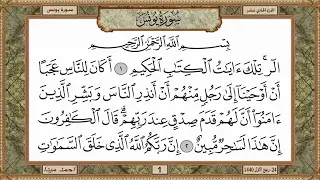 الجزء الحادي عشر
سورة يونس
سُورَةُ يُونُسَ
بِسْمِ ٱللَّهِ ٱلرَّحْمَٰنِ ٱلرَّحِيمِ
الٓر ۚ تِلْكَ ءَايَٰتُ ٱلْكِتَٰبِ ٱلْحَكِيمِ ١ أَكَانَ لِلنَّاسِ عَجَبًا
أَنْ أَوْحَيْنَآ إِلَىٰ رَجُلٍ مِّنْهُمْ أَنْ أَنذِرِ ٱلنَّاسَ وَبَشِّرِ ٱلَّذِينَ
ءَامَنُوٓا۟ أَنَّ لَهُمْ قَدَمَ صِدْقٍ عِندَ رَبِّهِمْ ۗ قَالَ ٱلْكَٰفِرُونَ
إِنَّ هَٰذَا لَسَٰحِرٌ مُّبِينٌ ٢ إِنَّ رَبَّكُمُ ٱللَّهُ ٱلَّذِى خَلَقَ ٱلسَّمَٰوَٰتِ
24- ربيع الأول 1440
1